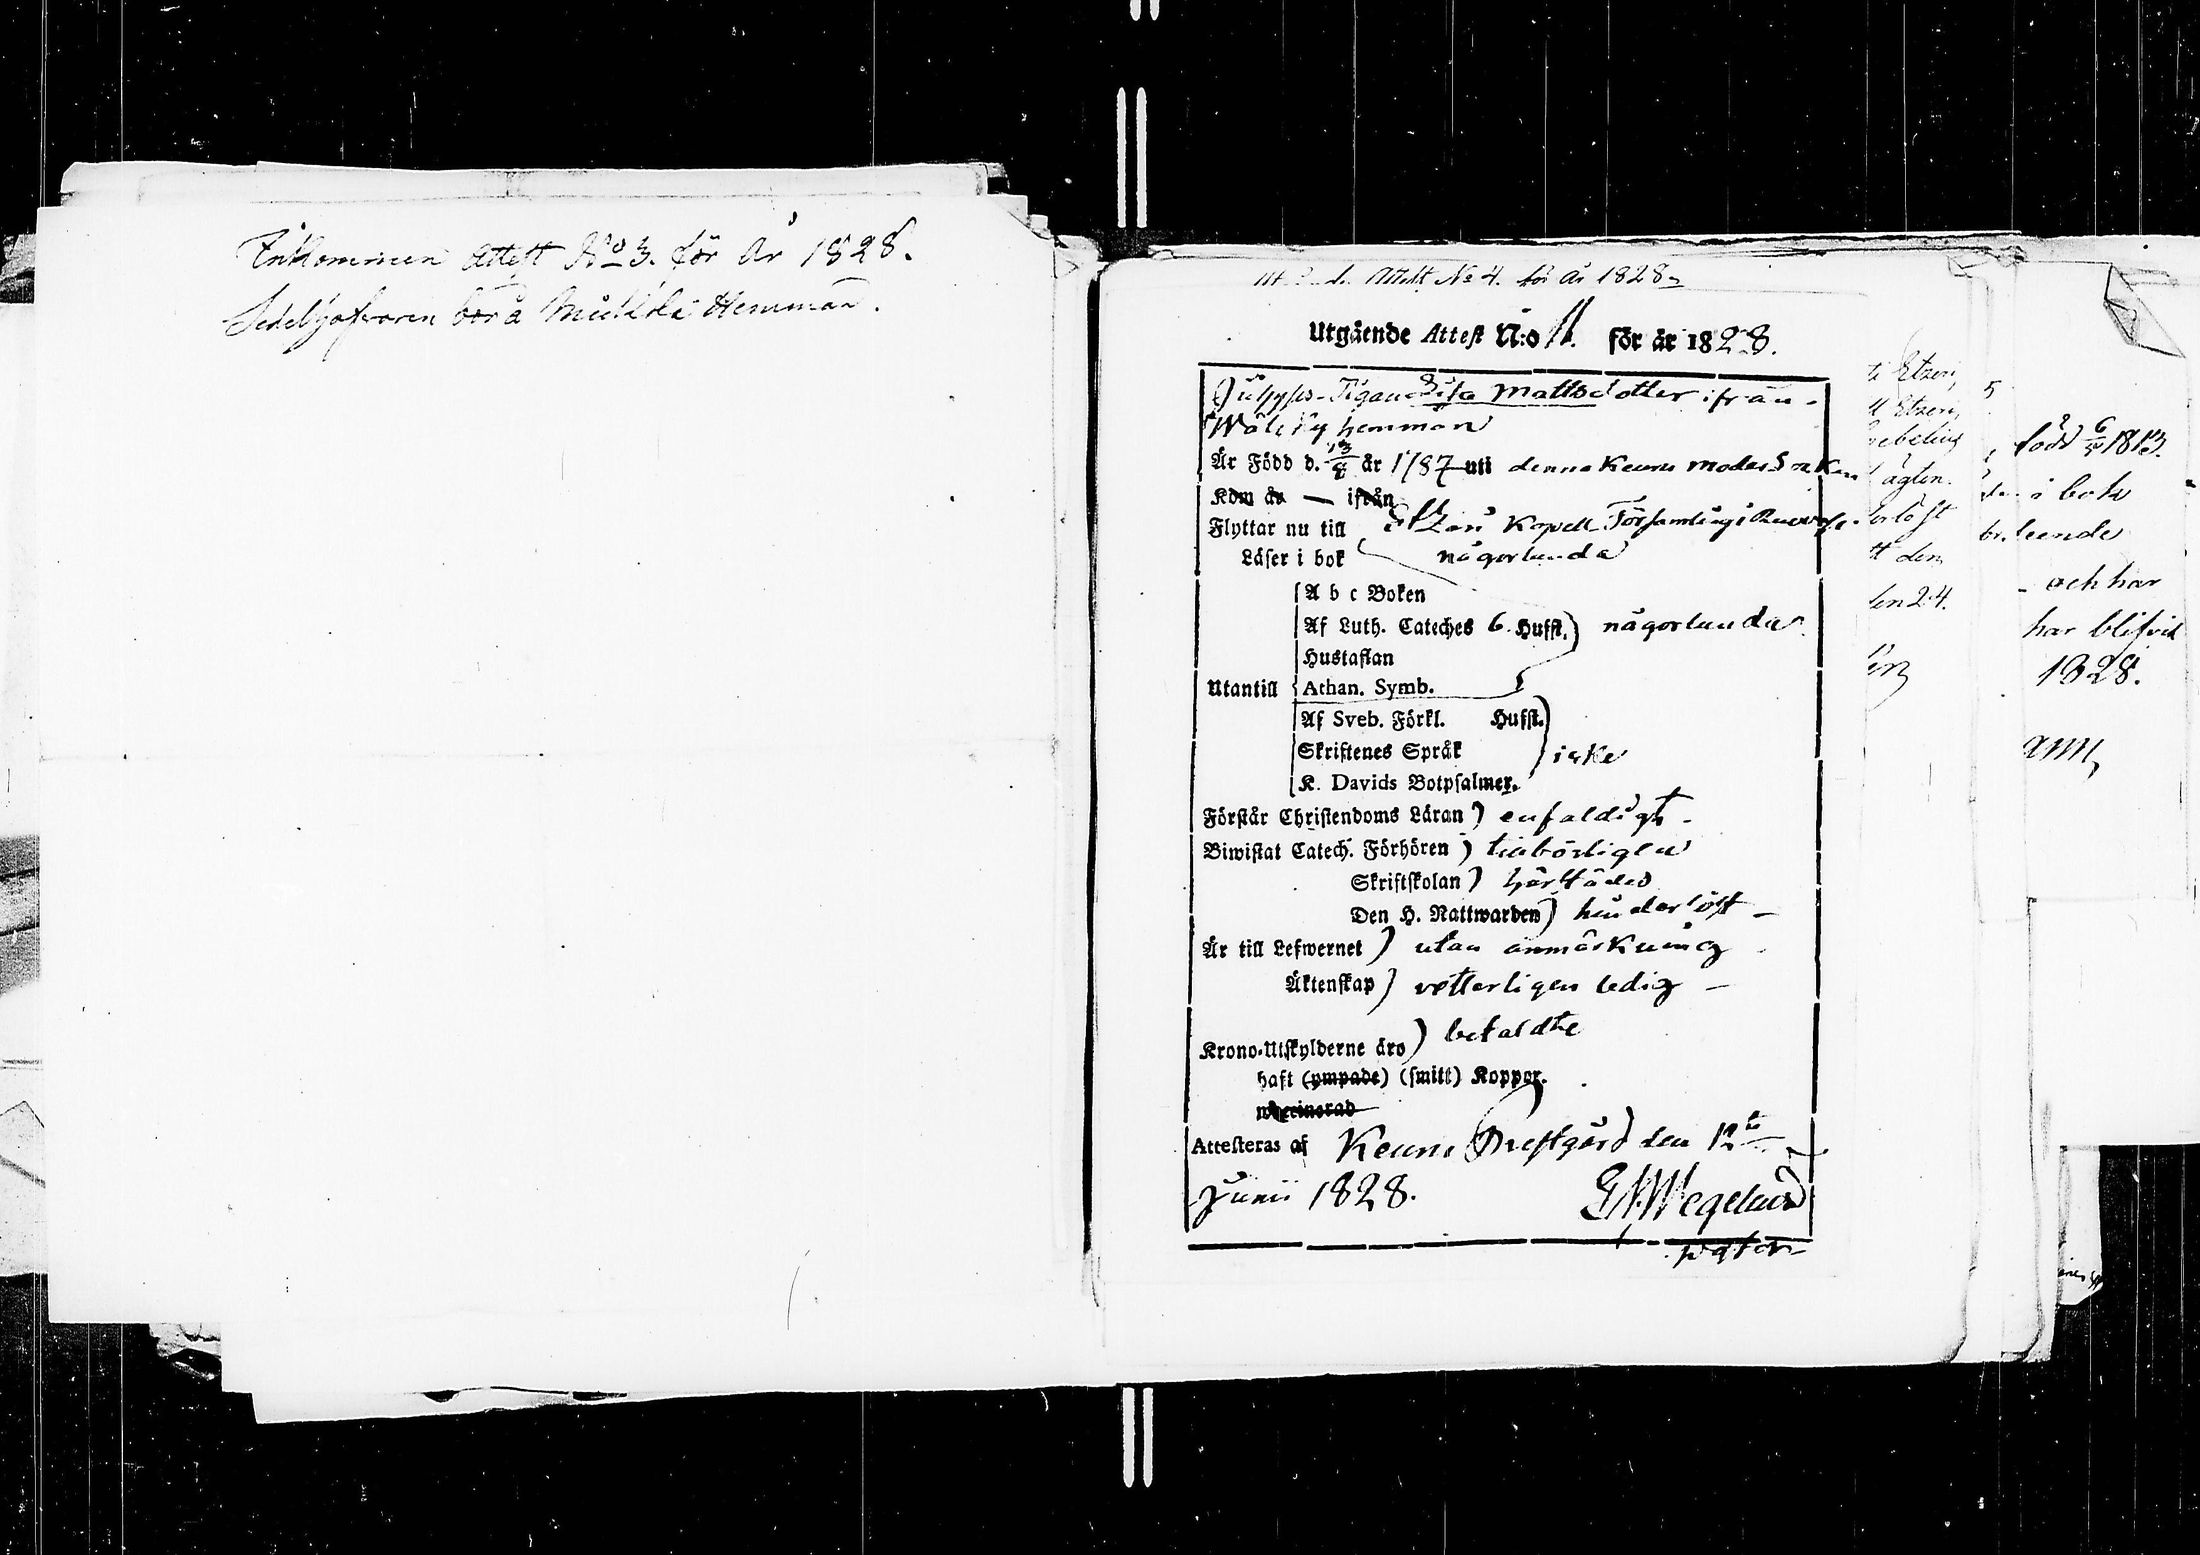 Inkommen Attest No 3. för År 1828.
Sedelgifvaren bor å Mullila Hemman.
Attest No 4. för År 1828
Utgående Attest N:o 11. för år 1828.
Mattsdotter ifrån
hemman
Är Född d. 13/8 år 1787 uti denna Keuru moder Soken
Kom år — ifrån
Flyttar nu till Etzari Kapell Församling i Ruovesi
Läser i bok någorlunda
A b c Boken
Af Luth. Cateches 6. Hufst.) någorlunda
Hustaflan
Utantill Athan. Symb.
Af Sveb. Förkl. Hufst.
Skriftenes Språk icke
K. Davids Botpsalmer.
Förstår Christendoms Läran) enfaldigt
Biwistat Catech. Förhören) tillbörligen
Skriftskolan) härstädes
Den H. Nattwarden) hinderlöst
Är till Lefwernet) utan anmärkning
Äktenskap) vetterligen ledig
Krono-Utskylderne äro) betaldte
haft (ympade) (smitt) Koppor.
waccinerad
Attesteras af Keuru Prestgård den 12te
Junii 1828. Wegelius
pastor
ti Etzeri
ll Etzeri
ägten.
tt den
den 24.
född 6/5 1813.
i bok
och har
har blifvit
1828.